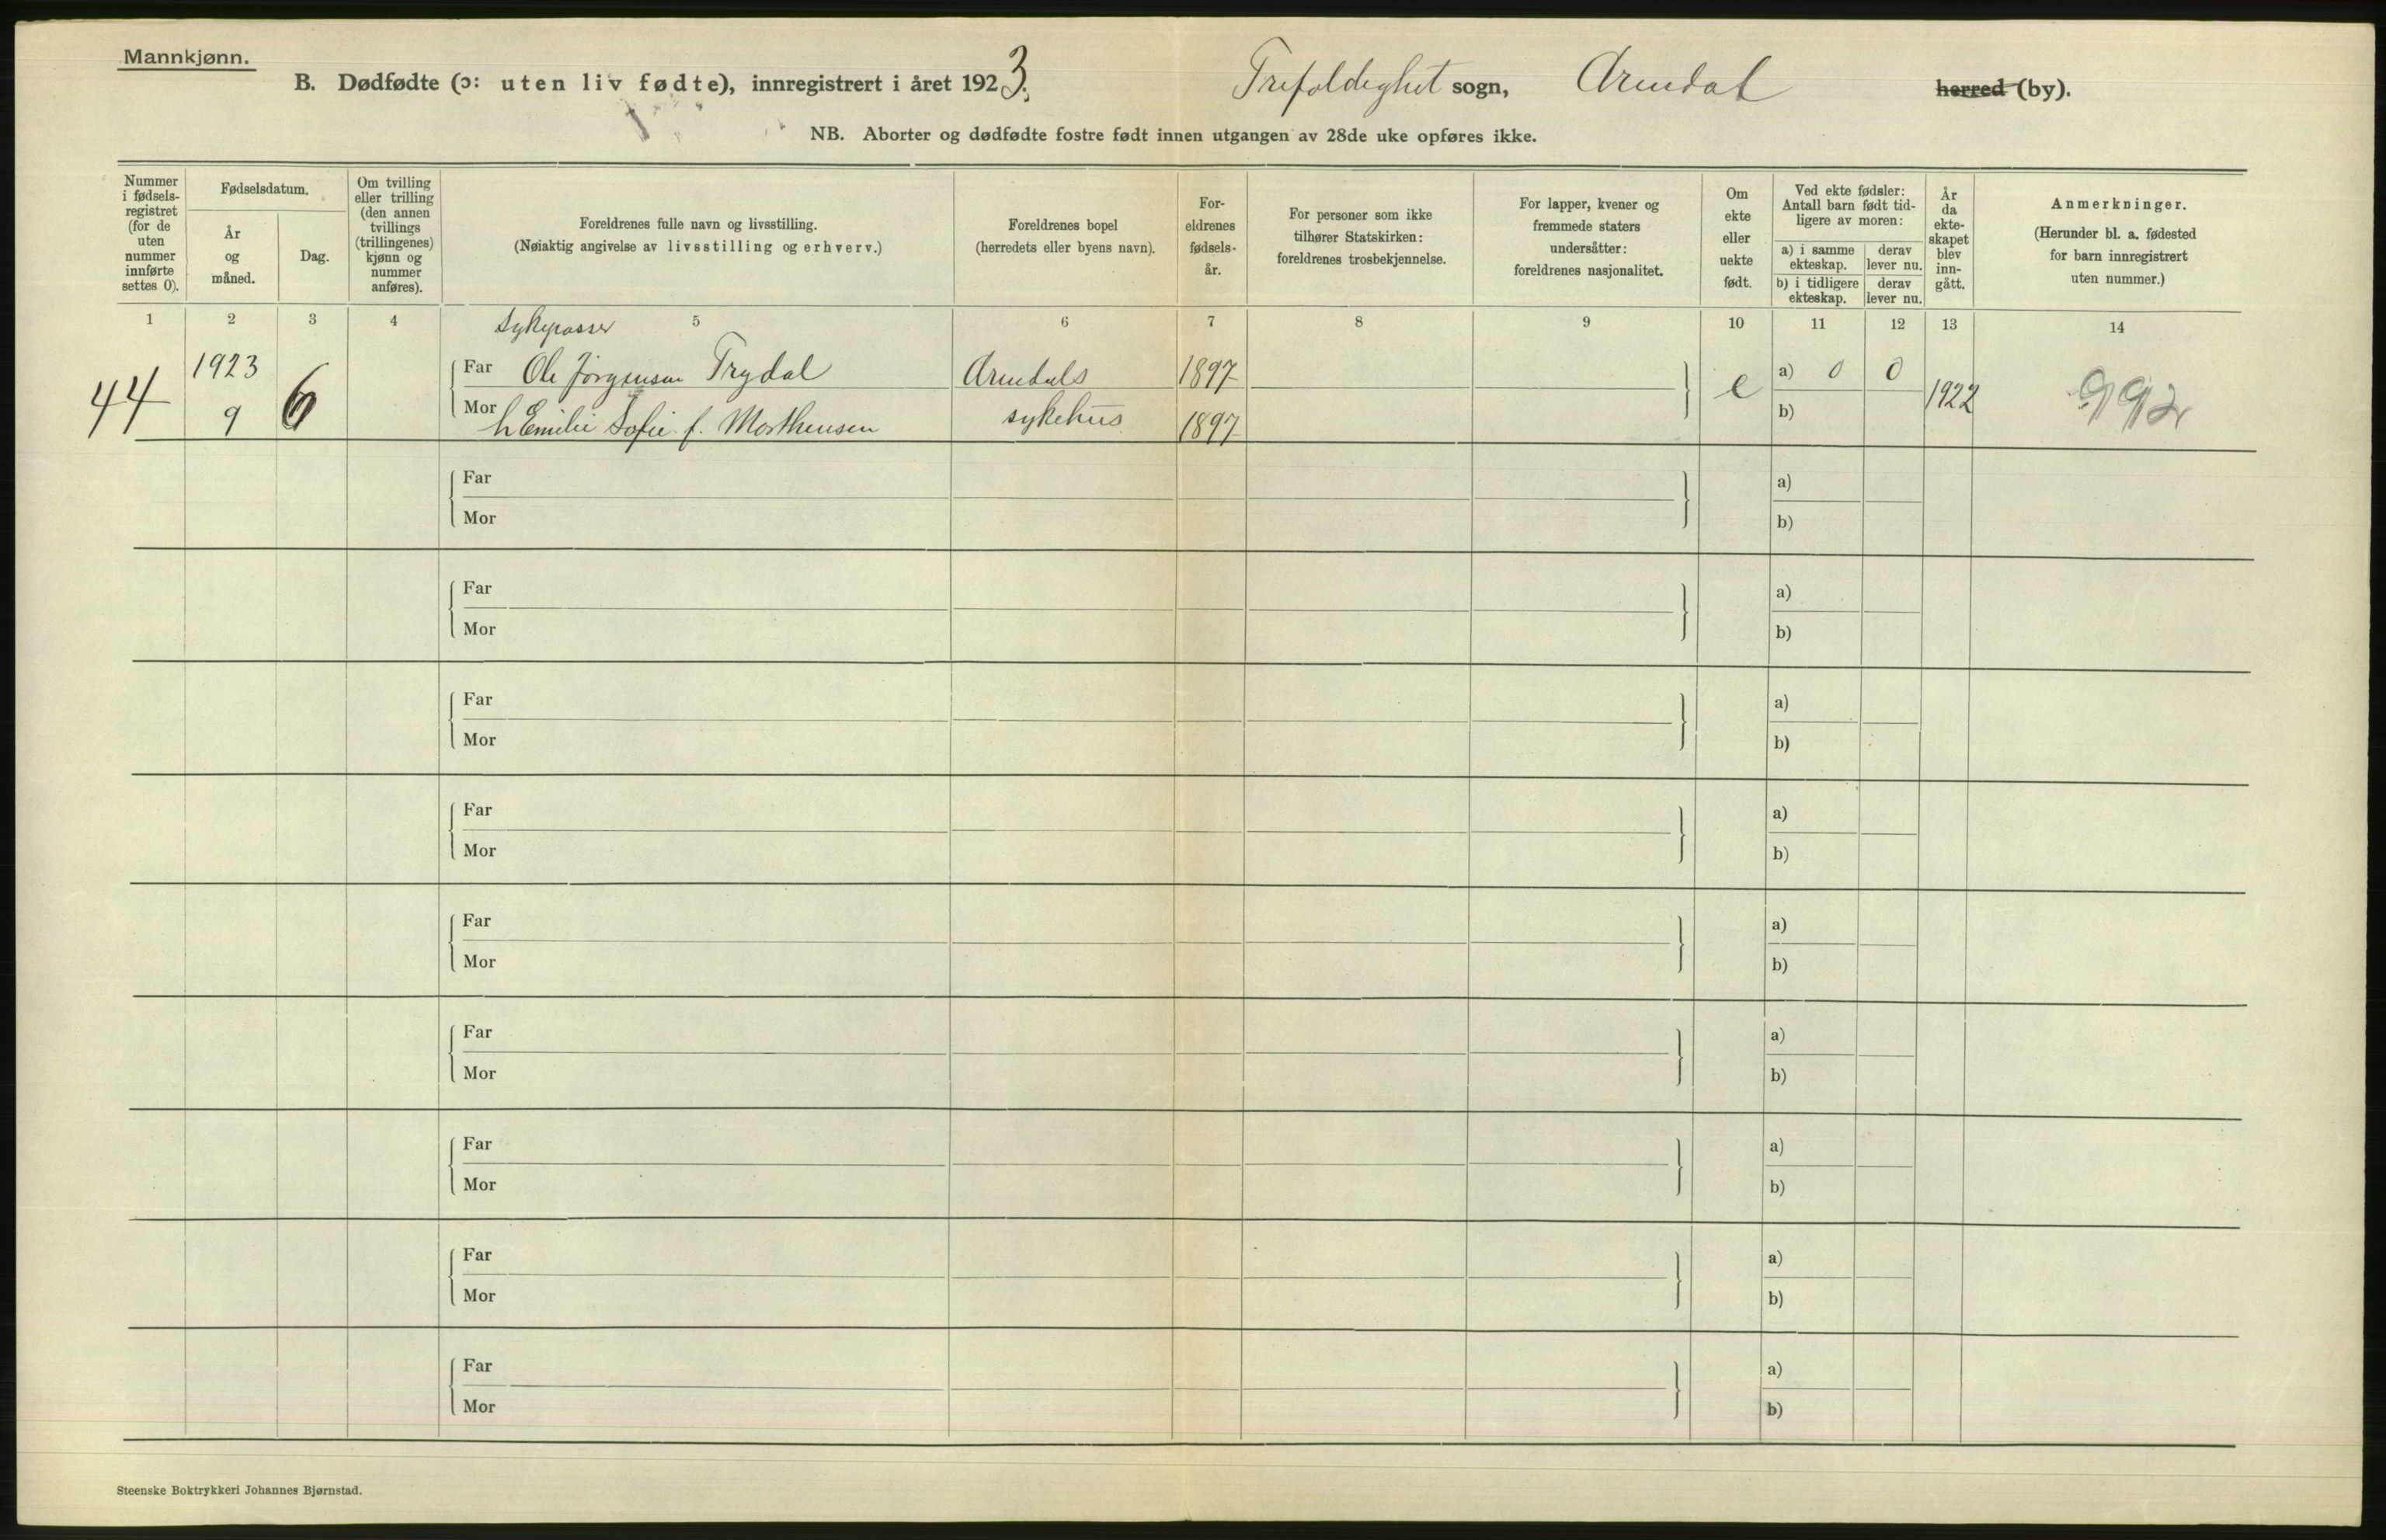 Mannkjønn.
B. Dødfødte (ɔ: uten liv fødte), innregistrert i året 1923. Trefoldighet sogn, Arendal herred (by).
NB. Aborter og dødfødte fostre født innen utgangen av 28de uke opføres ikke.
Nummer i fødsels- registret (for de uten nummer innførte settes 0).
Fødselsdatum.
År og måned.
Dag.
Om tvilling eller trilling (den annen tvillings (trillingenes) kjønn og nummer anføres).
Foreldrenes fulle navn og livsstilling.
(Nøiaktig angivelse av livsstilling og erhverv.)
Foreldrenes bopel
(herredets eller byens navn).
For- eldrenes fødsels- år.
For personer som ikke tilhører Statskirken: foreldrenes trosbekjennelse.
For lapper, kvener og fremmede staters undersåtter: foreldrenes nasjonalitet.
Om ekte eller uekte født.
Ved ekte fødsler: Antall barn født tid- ligere av moren:
a) i samme ekteskap.
derav lever nu.
b) i tidligere ekteskap.
derav lever nu.
År da ekte- skapet blev inn- gått.
Anmerkninger.
(Herunder bl. a. fødested for barn innregistrert uten nummer.)
1 2 3 4 5 6 7 8 9 10 11 12 13 14
Sykepasser
44 1923 9 6
Far Ole Jørgensen Trydal Arendals 1897 e a) 0 0 1922 992
Mor h Emilie Sofie f. Morthensen sykehus 1897 b)
Far a)
Mor b)
Far a)
Mor b)
Far a)
Mor b)
Far a)
Mor b)
Far a)
Mor b)
Far a)
Mor b)
Far a)
Mor b)
Far a)
Mor b)
Far a)
Mor b)
Steenske Boktrykkeri Johannes Bjørnstad.